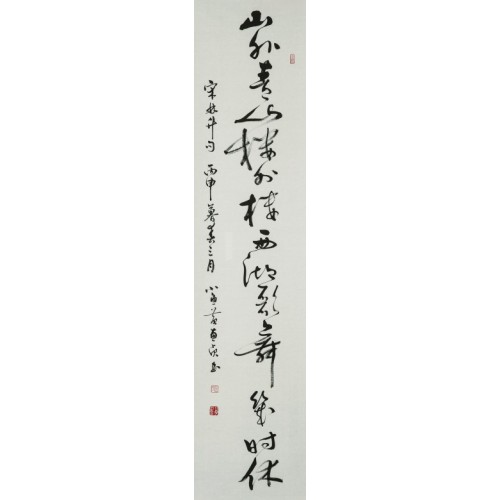 山外青山楼外楼西湖歌舞幾时休
宋林升句 丙申暮春三月